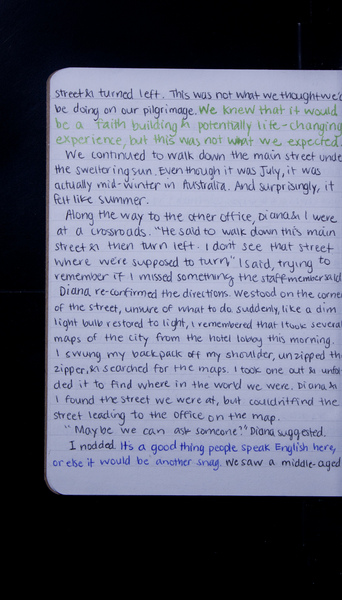 street & turned left. This was not what we thought we'd
be doing on our pilgrimage. We knew that it would
be a faith building & potentially life-changing
experience, but this was not what we expected.
We continued to walk down the main street unde
the sweltering sun. Even though it was July, it was
actually mid-winter in Australia. And surprisingly, it
felt like summer.
Along the way to the other office, Diana & I were
at a crossroads. "He said to walk down this main
street & then turn left. I don't see that street
where we're supposed to turn" I said, trying to
remember if I missed something the staff member said
Diana re-confirmed the directions. We stood on the corne
of the street, unsure of what to do. Suddenly, like a dim
light bulb restored to light, I remembered that I took several
maps of the city from the hotel lobby this morning.
I swung my backpack off my shoulder, unzipped th
zipper, & searched for the maps. I took one out & unfol
ded it to find where in the world we were. Diana &
I found the street we were at, but couldn't find the
street leading to the office on the map.
"Maybe we can ask someone?" Diana suggested.
I nodded. It's a good thing people speak English here,
or else it would be another snag. We saw a middle-aged